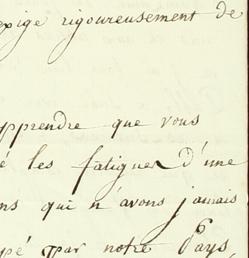 exige rigoureusement de
apprendre que vous
é les fatigues d'une
ns qui n'avons jamais
pé par notre Pays,